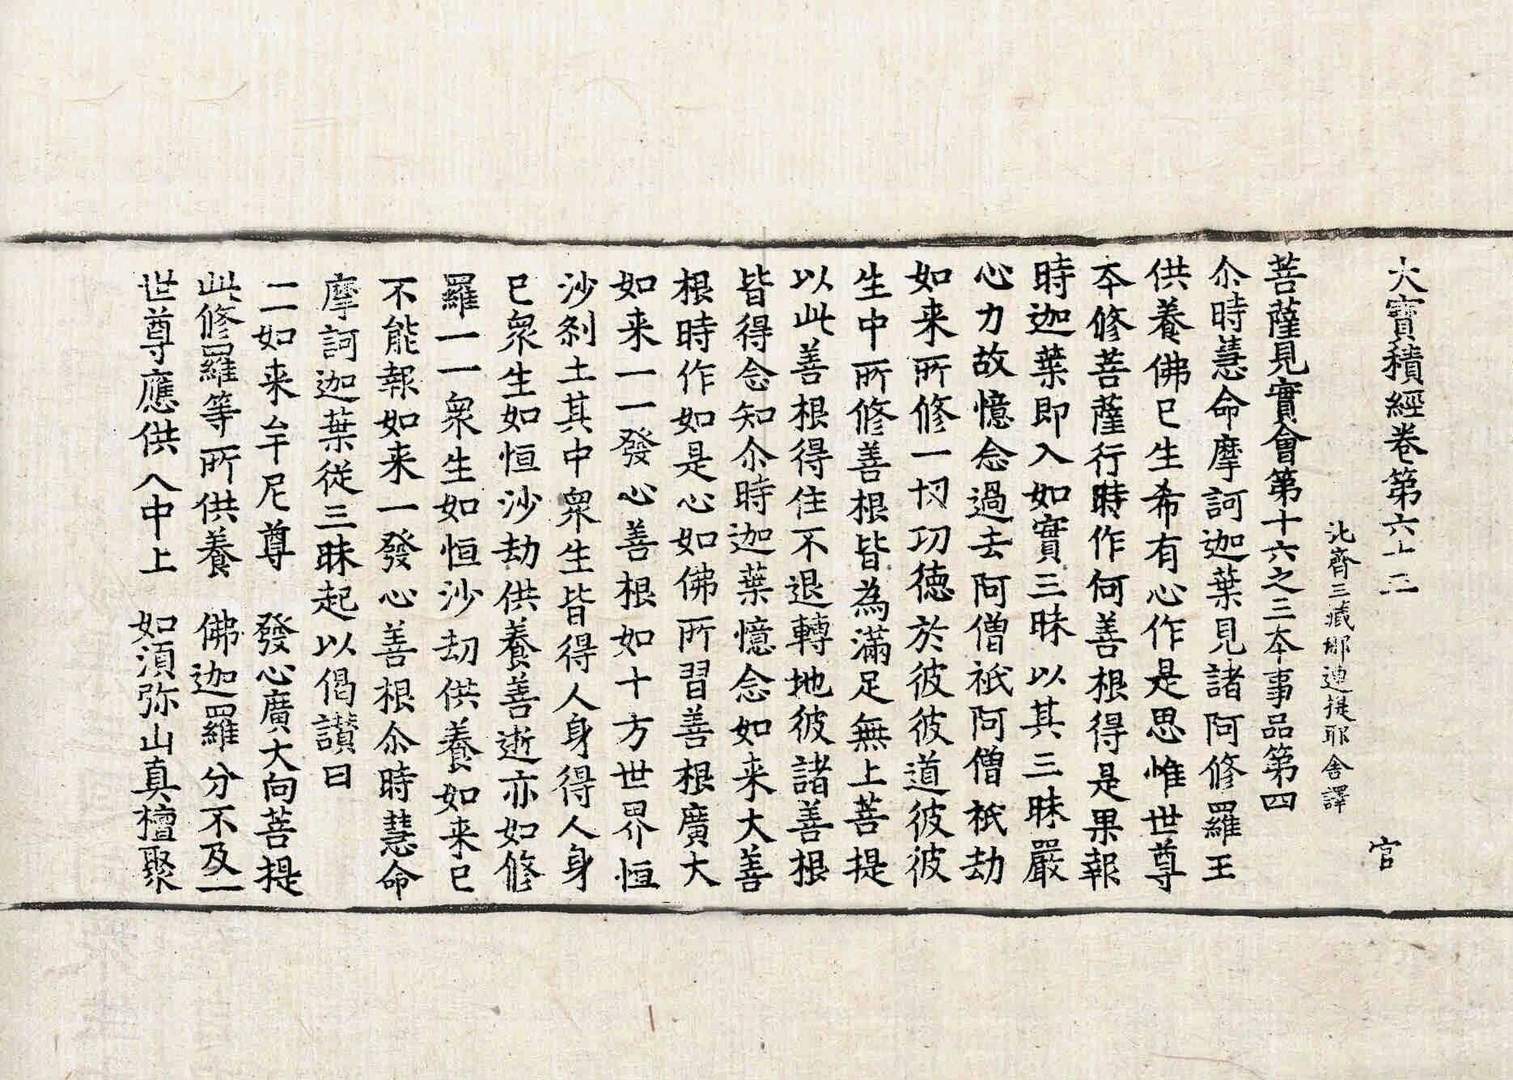 大寶積經卷第六十二 官
北齊三藏那連提耶舍譯
菩薩見實會第十六之二本事品第四
尒時慧命摩訶迦葉見諸阿修羅王
供養佛已生希有心作是思惟世尊
本修菩薩行時作何善根得是果報
時迦葉即入如實三昧以其三昧嚴
心力故憶念過去阿僧祇阿僧祇劫
如来所修一切功徳於彼彼道彼彼
生中所修善根皆為滿足無上菩提
以此善根得住不退轉地彼諸善根
皆得念知尒時迦葉憶念如来大善
根時作如是心如佛所習善根廣大
如来一一發心善根如十方世界恒
沙剎土其中衆生皆得人身得人身
已衆生如恒沙劫供養善逝亦如修
羅一一衆生如恒沙劫供養如来已
不能報如来一發心善根尒時慧命
摩訶迦葉從三昧起以偈讃曰
二如来牟尼尊 發心廣大向菩提
此修羅等所供養 佛迦羅分不及一
世尊應供人中上 如須弥山真檀聚